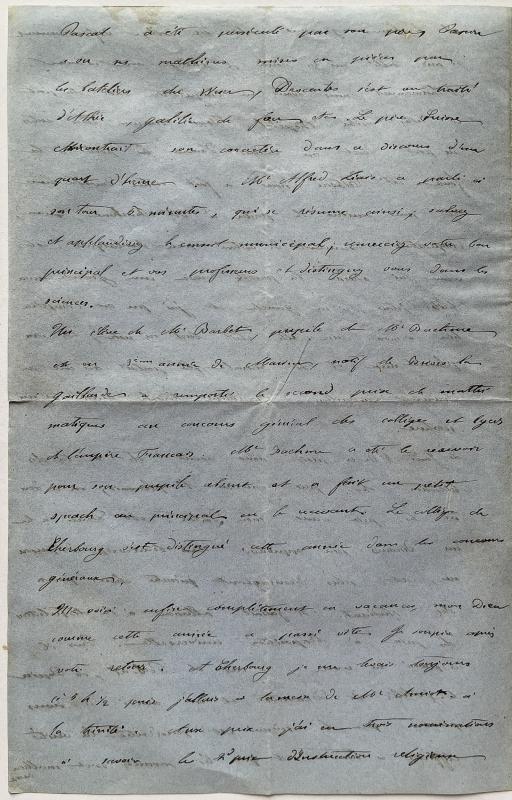 Pascal a été persécuté par son père
a vu ses machines mises en pièces par
les bateliers du Weser, Descartes s'est vu traité
d'Athée, galilée de fou et Le père
son caractère dans un discours d'un
quart d'heure. Mr Alfred Liais a parlé à
son tour 5 minutes, qui se résume ainsi, saluez
et applaudissez le conseil municipal, remerciez votre bon
principal et vos professeurs et distinguez vous dans les
sciences.
Un élève de Mr Barbet, pupile de Mr Duchesne
en 2eme année de Marine, natif de
gaillarde a remporté le second prix de mathé
matiques au concours général des collèges et lycées
de l'empire Français. Mr a été le recevoir
pour son pupile absent et a fait un petit
speach au principal en le recevant. Le collège de
Cherbourg s'est distingué cette année dans les concours
généraux.
Me voici enfin complètement en vacances, mon Dieu
comme cette année a passé vite. Je soupire après
votre retour. A Cherbourg je me levais toujours
à 5 h 1/2 puis j'allais à la messe de Mr à
la trinité. Aux prix j'ai eu trois nominations
à savoir le 2d prix d'instruction religieuse